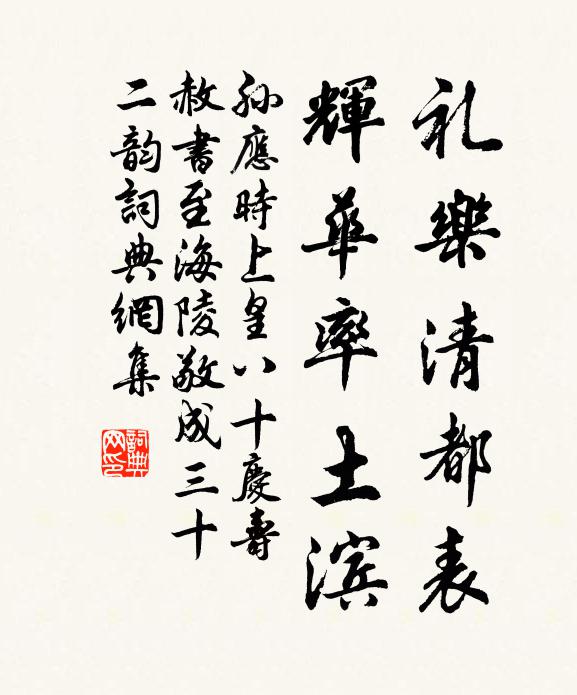 礼樂清都表
輝華率土滨
孙應時上皇八十慶壽
赦書至海陵敬成三十
二韵詞典網集
詞典
网印